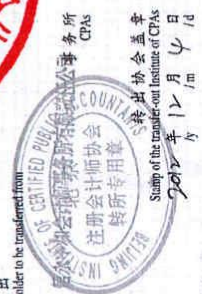 出
older to be transferred from
事务所
CPAs
OF CERTIFIED PUBLIC ACCOUNTANTS
BEIJING INSTITUTE
注册会计师协会
转所专用章
转出协会盖章
Stamp of the transfer-out Institute of CPAs
2012年12月4日
/y /m /d